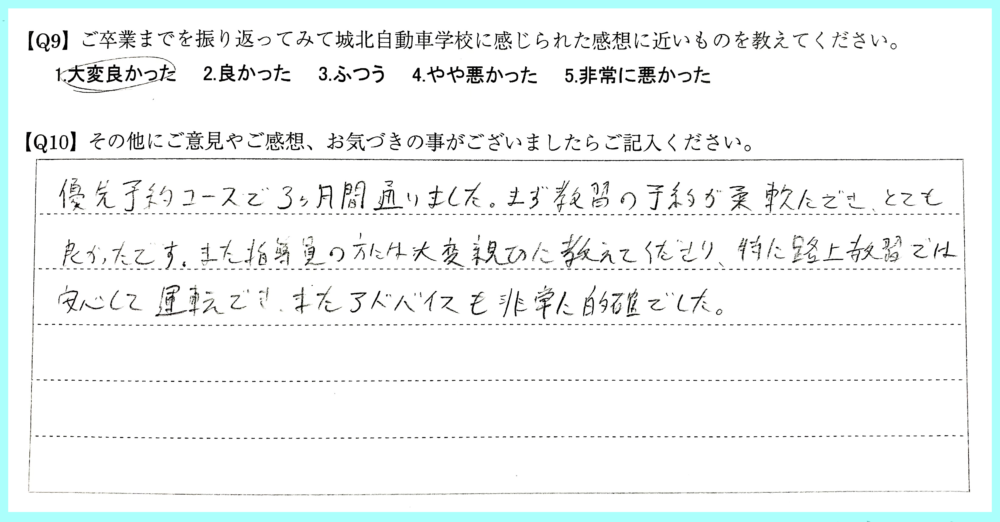 【Q9】ご卒業までを振り返ってみて城北自動車学校に感じられた感想に近いものを教えてください。
1.大変良かった 2.良かった 3.ふつう 4.やや悪かった 5.非常に悪かった
【Q10】その他にご意見やご感想、お気づきの事がございましたらご記入ください。
優先予約コースで3ヶ月間通いました。まず教習の予約が柔軟にでき、とても
良かったです。また指導員の方には大変親切に教えてくださり、特に路上教習では
安心して運転でき、またアドバイスも非常に的確でした。